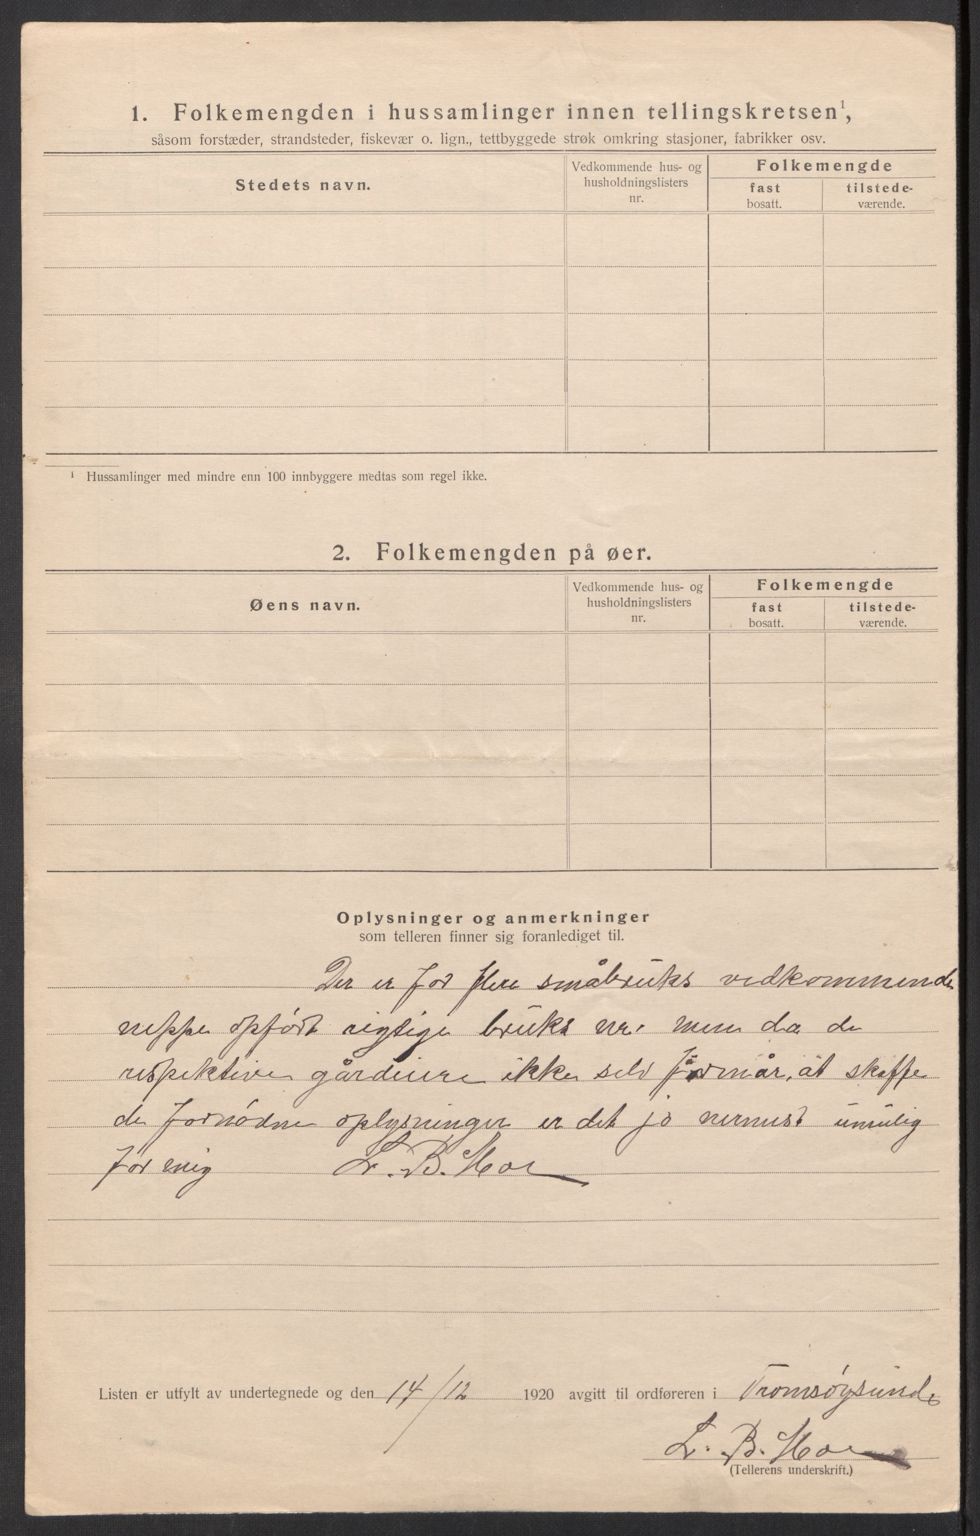 1. Folkemengden i hussamlinger innen tellingskretsen¹,
såsom forstæder, strandsteder, fiskevær o. lign., tettbyggede strøk omkring stasjoner, fabrikker osv.
Stedets navn.
Vedkommende hus- og
husholdningslisters
nr.
Folkemengde
fast
bosatt.
tilstede-
værende.
¹ Hussamlinger med mindre enn 100 innbyggere medtas som regel ikke.
2. Folkemengden på øer.
Øens navn.
Vedkommende hus- og
husholdningslisters
nr.
Folkemengde
fast
bosatt.
tilstede-
værende.
Oplysninger og anmerkninger
som telleren finner sig foranlediget til.
Der er for flere småbruks vedkommende
neppe opført rigtige bruks nr. men da de
respektive gårdeiere ikke selv formår, at skaffe
de fornødne oplysninger er det jo nermest umulig
for mig L. B. Moe
Listen er utfylt av undertegnede og den 14/12 1920 avgitt til ordføreren i Tromsøysund
L. B. Moe
(Tellerens underskrift.)